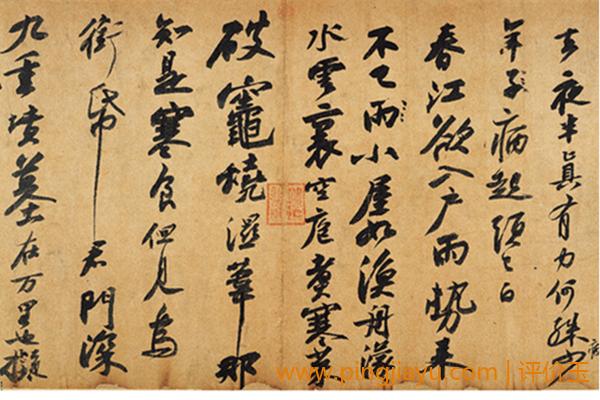 去夜半真有力何殊少
病
年子病起頭已白
春江欲入戶雨勢來
不已雨小屋如漁舟濛
水雲裏空庖煮寒菜
破竈燒濕葦那
知是寒食但見烏
銜帋君門深
九重墳墓在万里也擬
www.pingjiayu.com | 评价玉